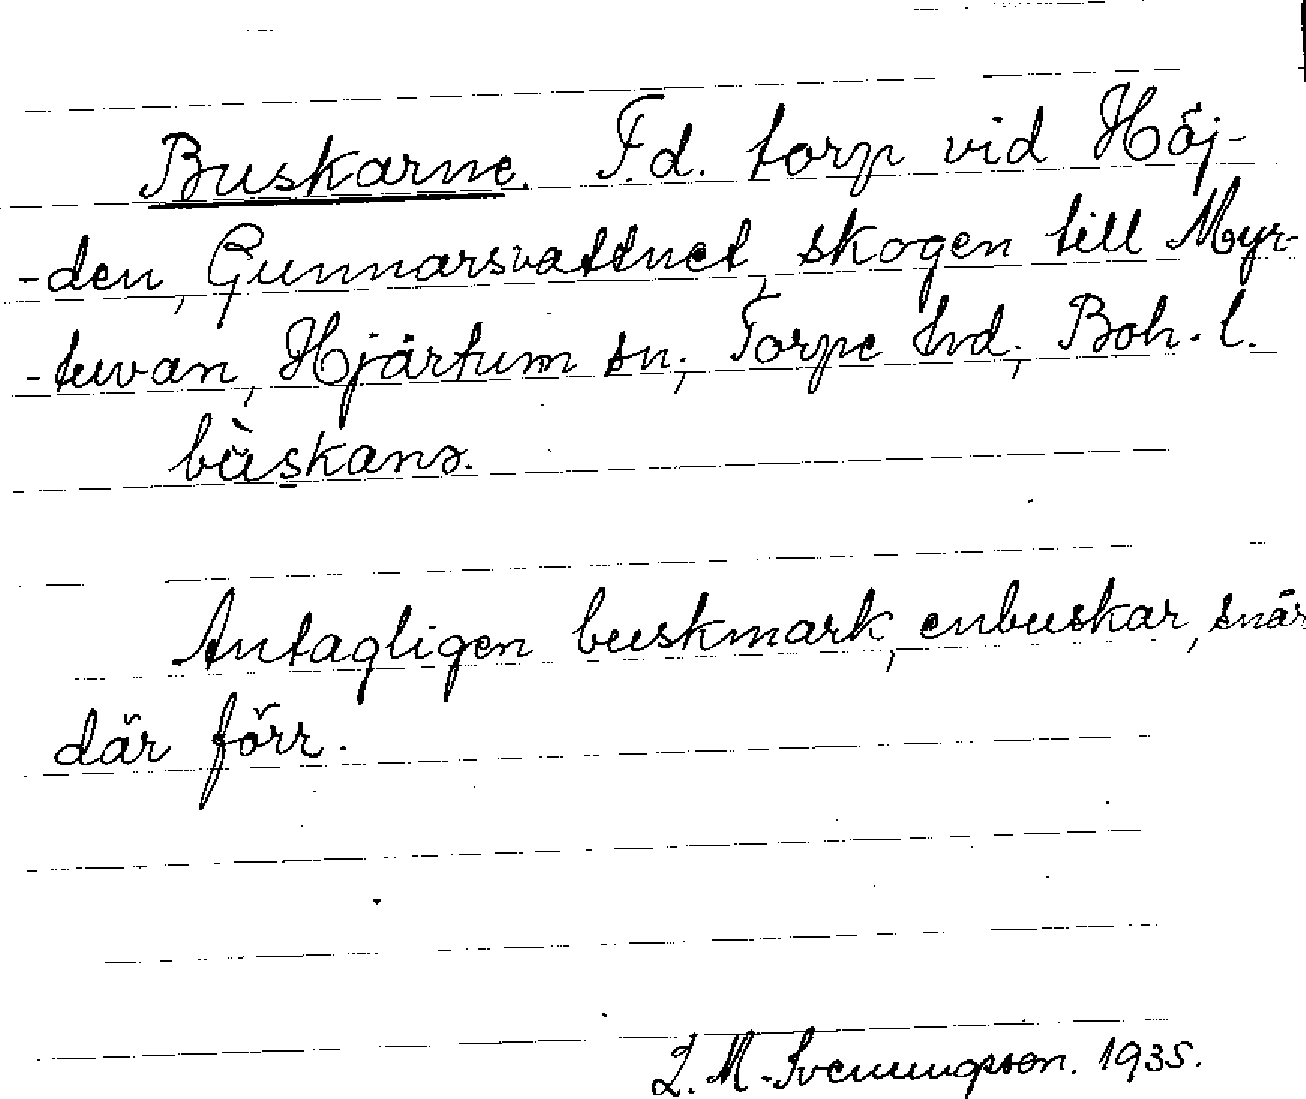 Buskarne. F.d. torp vid Höj-
-den, Gunnarsvattnet, skogen till Myr-
-tuvan, Hjärtum sn; Torpe hd; Boh. l.
bùskanə.
Antagligen buskmark, enbuskar, snår
där förr.
L. M. Svenungsson. 1935.